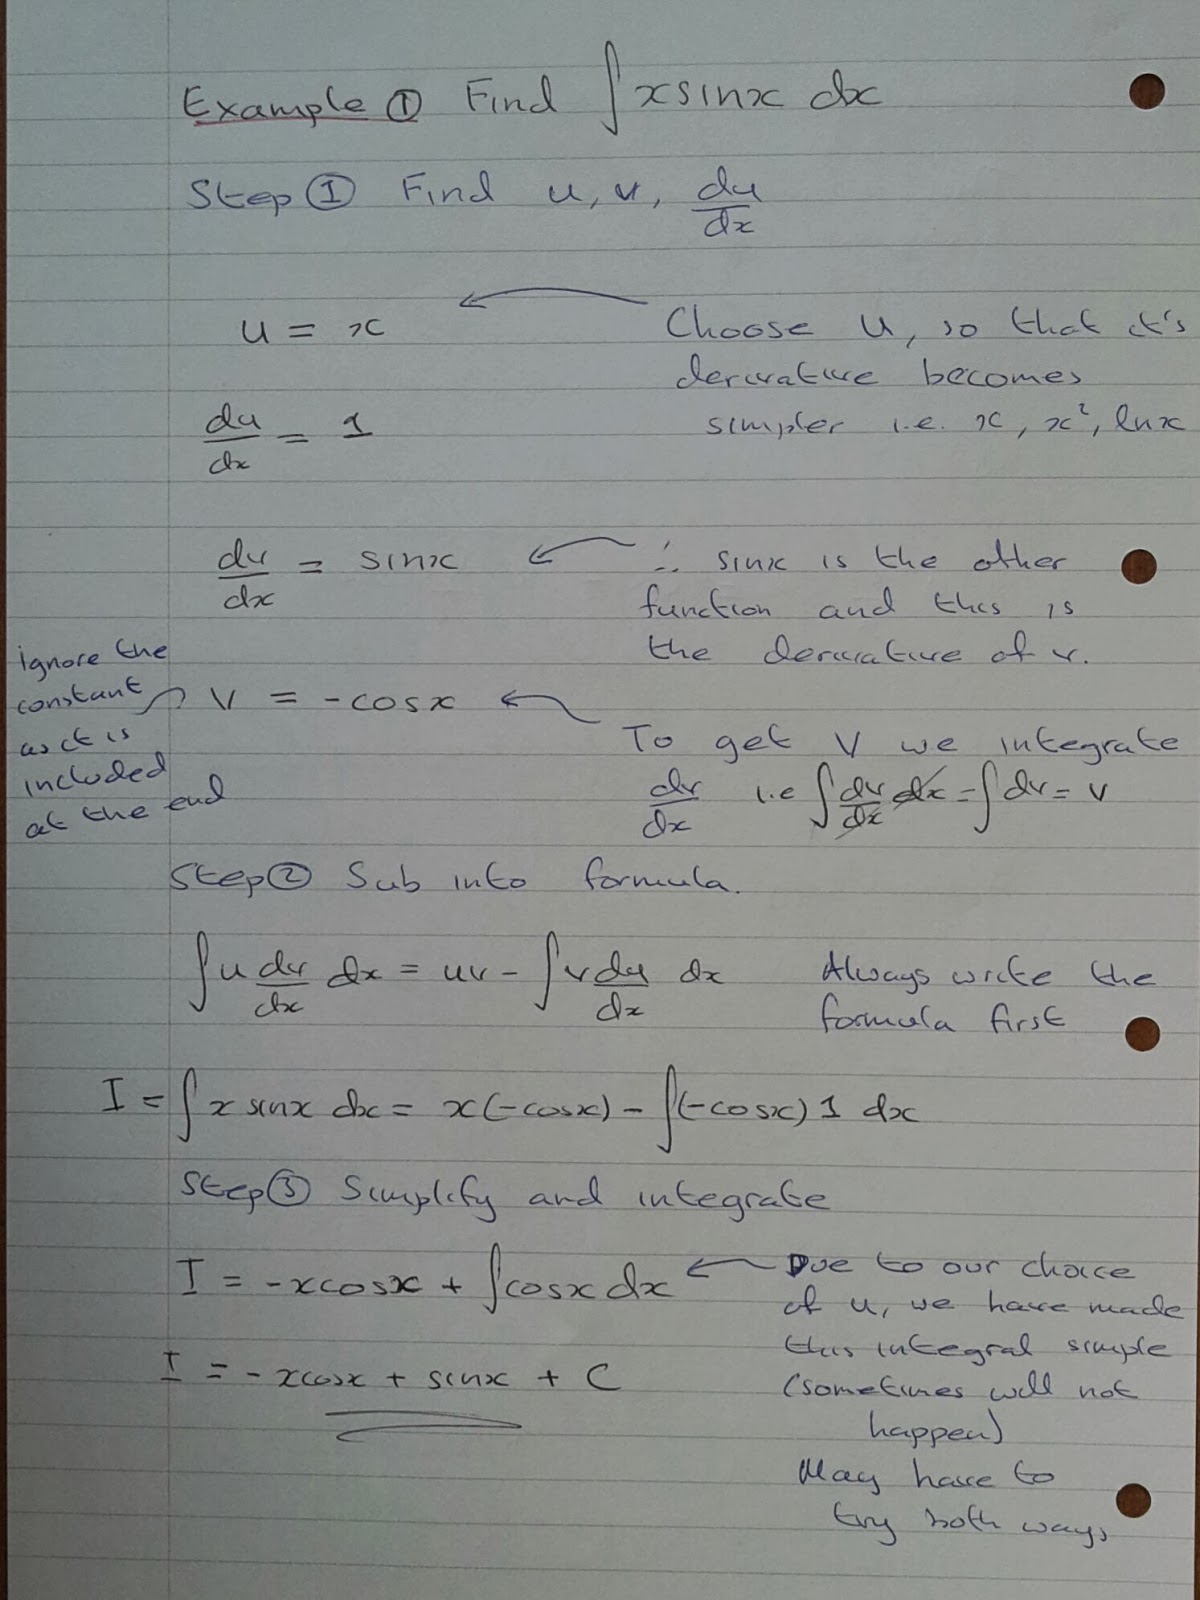 Example ① Find ∫x sinx dx
Step ① Find u, v, du/dx
u = x
Choose u, so that it's
derivative becomes
simpler i.e. x, x², lnx
du/dx = 1
dv/dx = sinx
∴ sinx is the other
function and this is
the derivative of v.
ignore the
constant
as it is
included
at the end
v = -cosx
To get v we integrate
dv/dx i.e ∫ dv/dx dx = ∫ dv = v
Step ② Sub into formula.
∫ u dv/dx dx = uv - ∫ v du/dx dx
Always write the
formula first
I = ∫ x sinx dx = x(-cosx) - ∫(-cosx) 1 dx
Step ③ Simplify and integrate
I = -xcosx + ∫cosx dx
Due to our choice
of u, we have made
this integral simple
(sometimes will not
happen)
May have to
try both ways
I = -xcosx + sinx + C